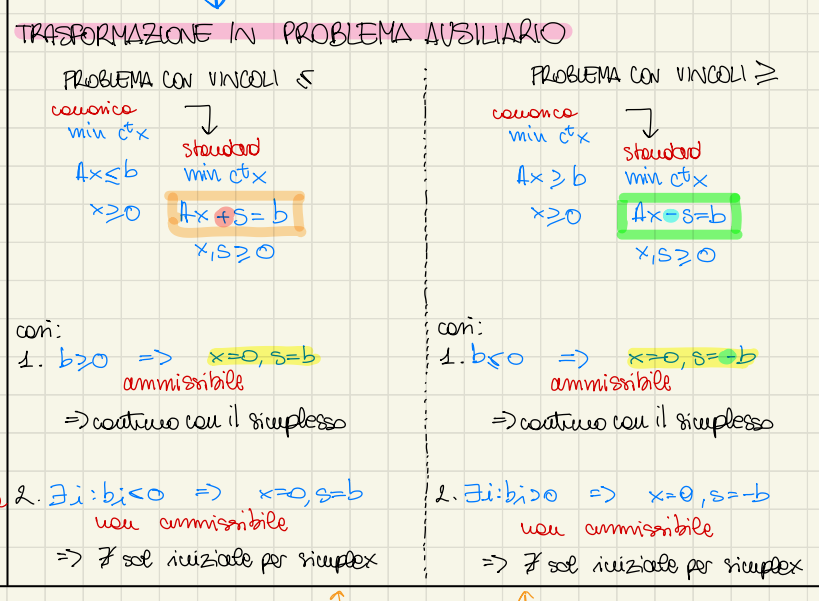 TRASFORMAZIONE IN PROBLEMA AUSILIARIO
PROBLEMA CON VINCOLI ≤
canonica
min cᵗx
Ax ≤ b
x ≥ 0
standard
min cᵗx
Ax + s = b
x, s ≥ 0
casi:
1. b ≥ 0 => x=0, s=b
ammissibile
=> continuo con il simplesso
2. ∃i : bi < 0 => x=0, s=b
non ammissibile
=> ∄ sol iniziale per simplex
PROBLEMA CON VINCOLI ≥
canonica
min cᵗx
Ax ≥ b
x ≥ 0
standard
min cᵗx
Ax - s = b
x, s ≥ 0
casi:
1. b ≤ 0 => x=0, s=-b
ammissibile
=> continuo con il simplesso
2. ∃i : bi > 0 => x=0, s=-b
non ammissibile
=> ∄ sol iniziale per simplex